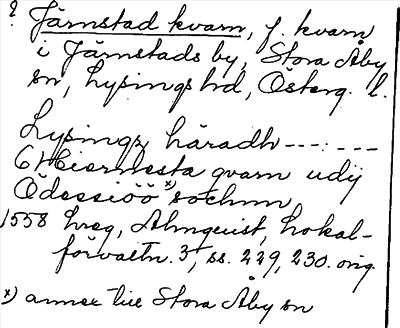 ? Järnstad kvarn, f. kvarn
i Järnstads by, Stora Åby
sn, Lysings hd, Österg. l.
Lysings häradh --- : ---
6) Hiernesta qvarn udij
Ödessiöö x) sochnn
1558 hreg, Almquist, Lokal-
förvaltn. 3, ss. 229, 230. orig.
x) annex till Stora Åby sn